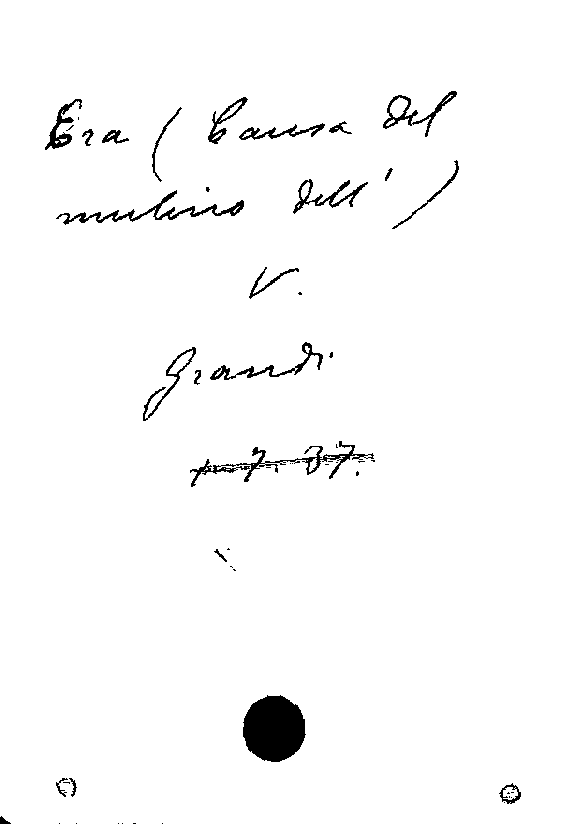 Era (Causa del
mulino dell')
V.
Grandi
1. 7. 37.